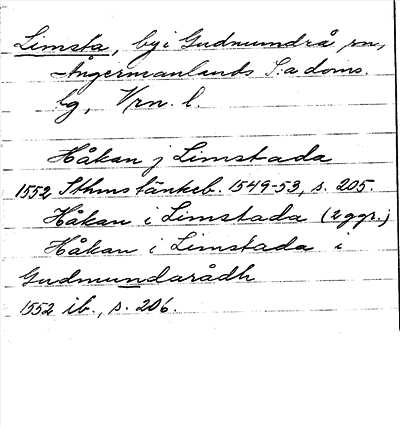 Limsta, by i Gudmundrå sn,
Ångermanlands S:a doms.
bg, Vrn. l.
Håkan j Limstada
1552 Sthms tänkeb. 1549-53, s. 205.
Håkan i Limstada (2 ggr.)
Håkan i Limstada i
Gudmundarådh
1552 ib., s. 206.